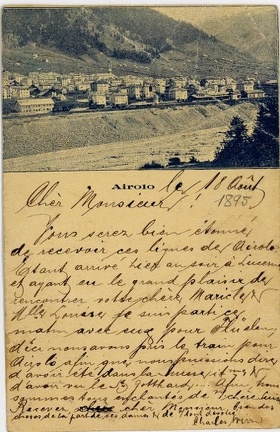 Airolo le 18 Août
1895
Cher Monsieur !
Vous serez bien étonné
de recevoir ces lignes de Airolo
Etant arrivé hier au soir à Lucerne
et ayant eu le grand plaisir de
rencontrer votre chère
Mlle Louise je suis parti ce
matin avec eux pour
d'ici nous avons pris le train pour
Airolo afin que nous puissions dire
d'avoir été dans la
d'avoir vu le St Gotthard. Enfin, nous
sommes tous enchantés de
Recevez cher Monsieur
choses de la part de ces dames & de votre dévoué
Charles